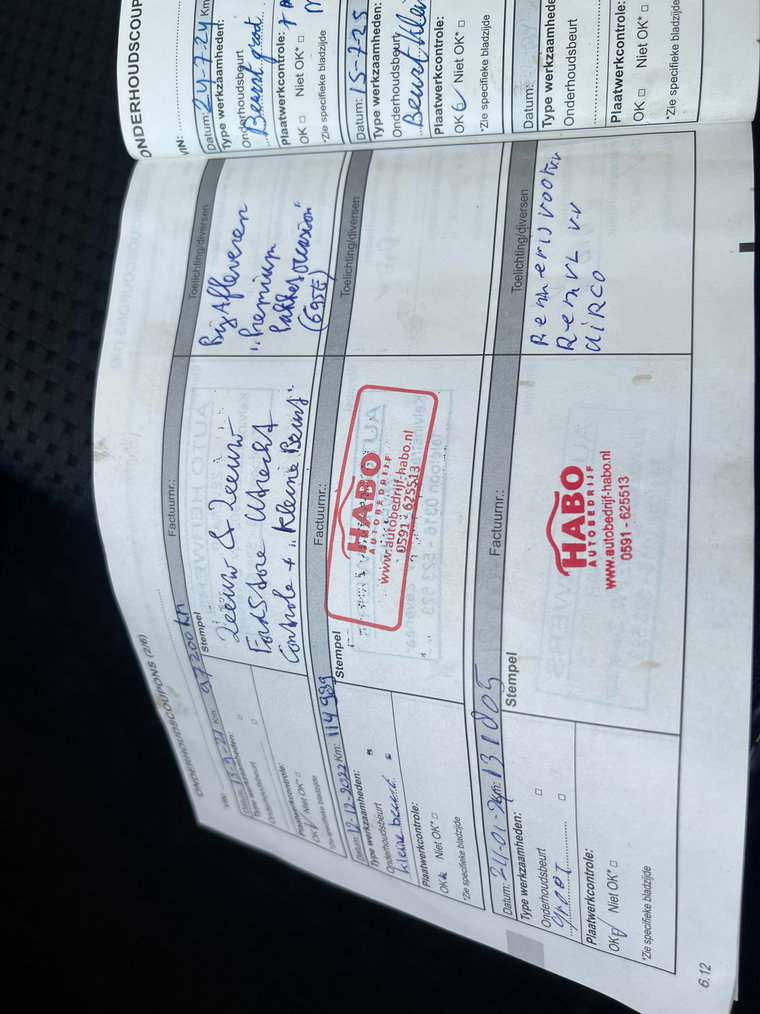 ONDERHOUDSCOUPONS (2/6)
VIN:
Km: 97 200 km
Factuurnr.:
Toelichting/diversen
Type werkzaamheden:
Onderhoudsbeurt
Plaatwerkcontrole:
OK Niet OK*
*Zie specifieke bladzijde
Stempel
Zeeuw & Zeeuw
Fordstore Utrecht
Controle + "Kleine Beurt".
Bij Afleveren
"Premium
occasion"
Datum: 12-12-2022 Km: 114 989
Factuurnr.:
Toelichting/diversen
Type werkzaamheden:
Onderhoudsbeurt
kleine beurt
Plaatwerkcontrole:
OK Niet OK*
*Zie specifieke bladzijde
Stempel
HABO
AUTOBEDRIJF
www.autobedrijf-habo.nl
0591 - 625513
Datum: 24-01-24 Km: 131005
Factuurnr.:
Toelichting/diversen
Type werkzaamheden:
Onderhoudsbeurt
groot
Plaatwerkcontrole:
OK Niet OK*
*Zie specifieke bladzijde
Stempel
HABO
AUTOBEDRIJF
www.autobedrijf-habo.nl
0591 - 625513
Remvl v.v
AIRCO
6.12
ONDERHOUDSCOUP
VIN:
Datum: 24-7-24 Km
Type werkzaamheden:
Onderhoudsbeurt
Beurt groot
Plaatwerkcontrole:
OK Niet OK*
*Zie specifieke bladzijde
Datum: 15-7-25
Type werkzaamheden:
Onderhoudsbeurt
Beurt klei
Plaatwerkcontrole:
OK Niet OK*
*Zie specifieke bladzijde
Datum:
Type werkzaamhede
Onderhoudsbeurt
Plaatwerkcontrole:
OK Niet OK*
*Zie specifieke bladzijde